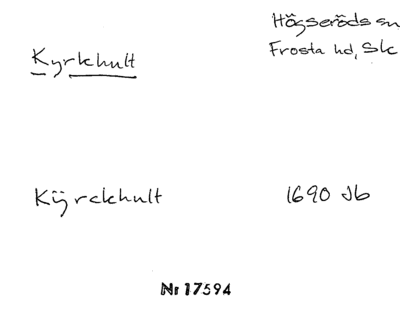 Högseröds sn
Kyrkhult
Frosta hd, Sk
Kÿrckhult 1690 Jb
Nr 17594